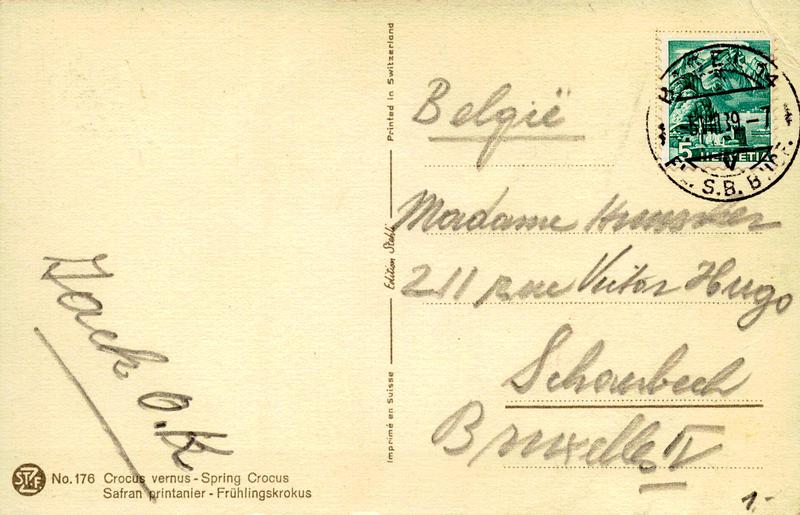 België
Madame
211 rue Victor Hugo
Scharbech
Bruxelles IV
Jack O.K
No. 176 Crocus vernus - Spring Crocus
Safran printanier - Frühlingskrokus
Imprimé en Suisse
Edition Stehli
Printed in Switzerland
5 HELVETIA
BASEL 14
39 - 7
S.B.
1.-